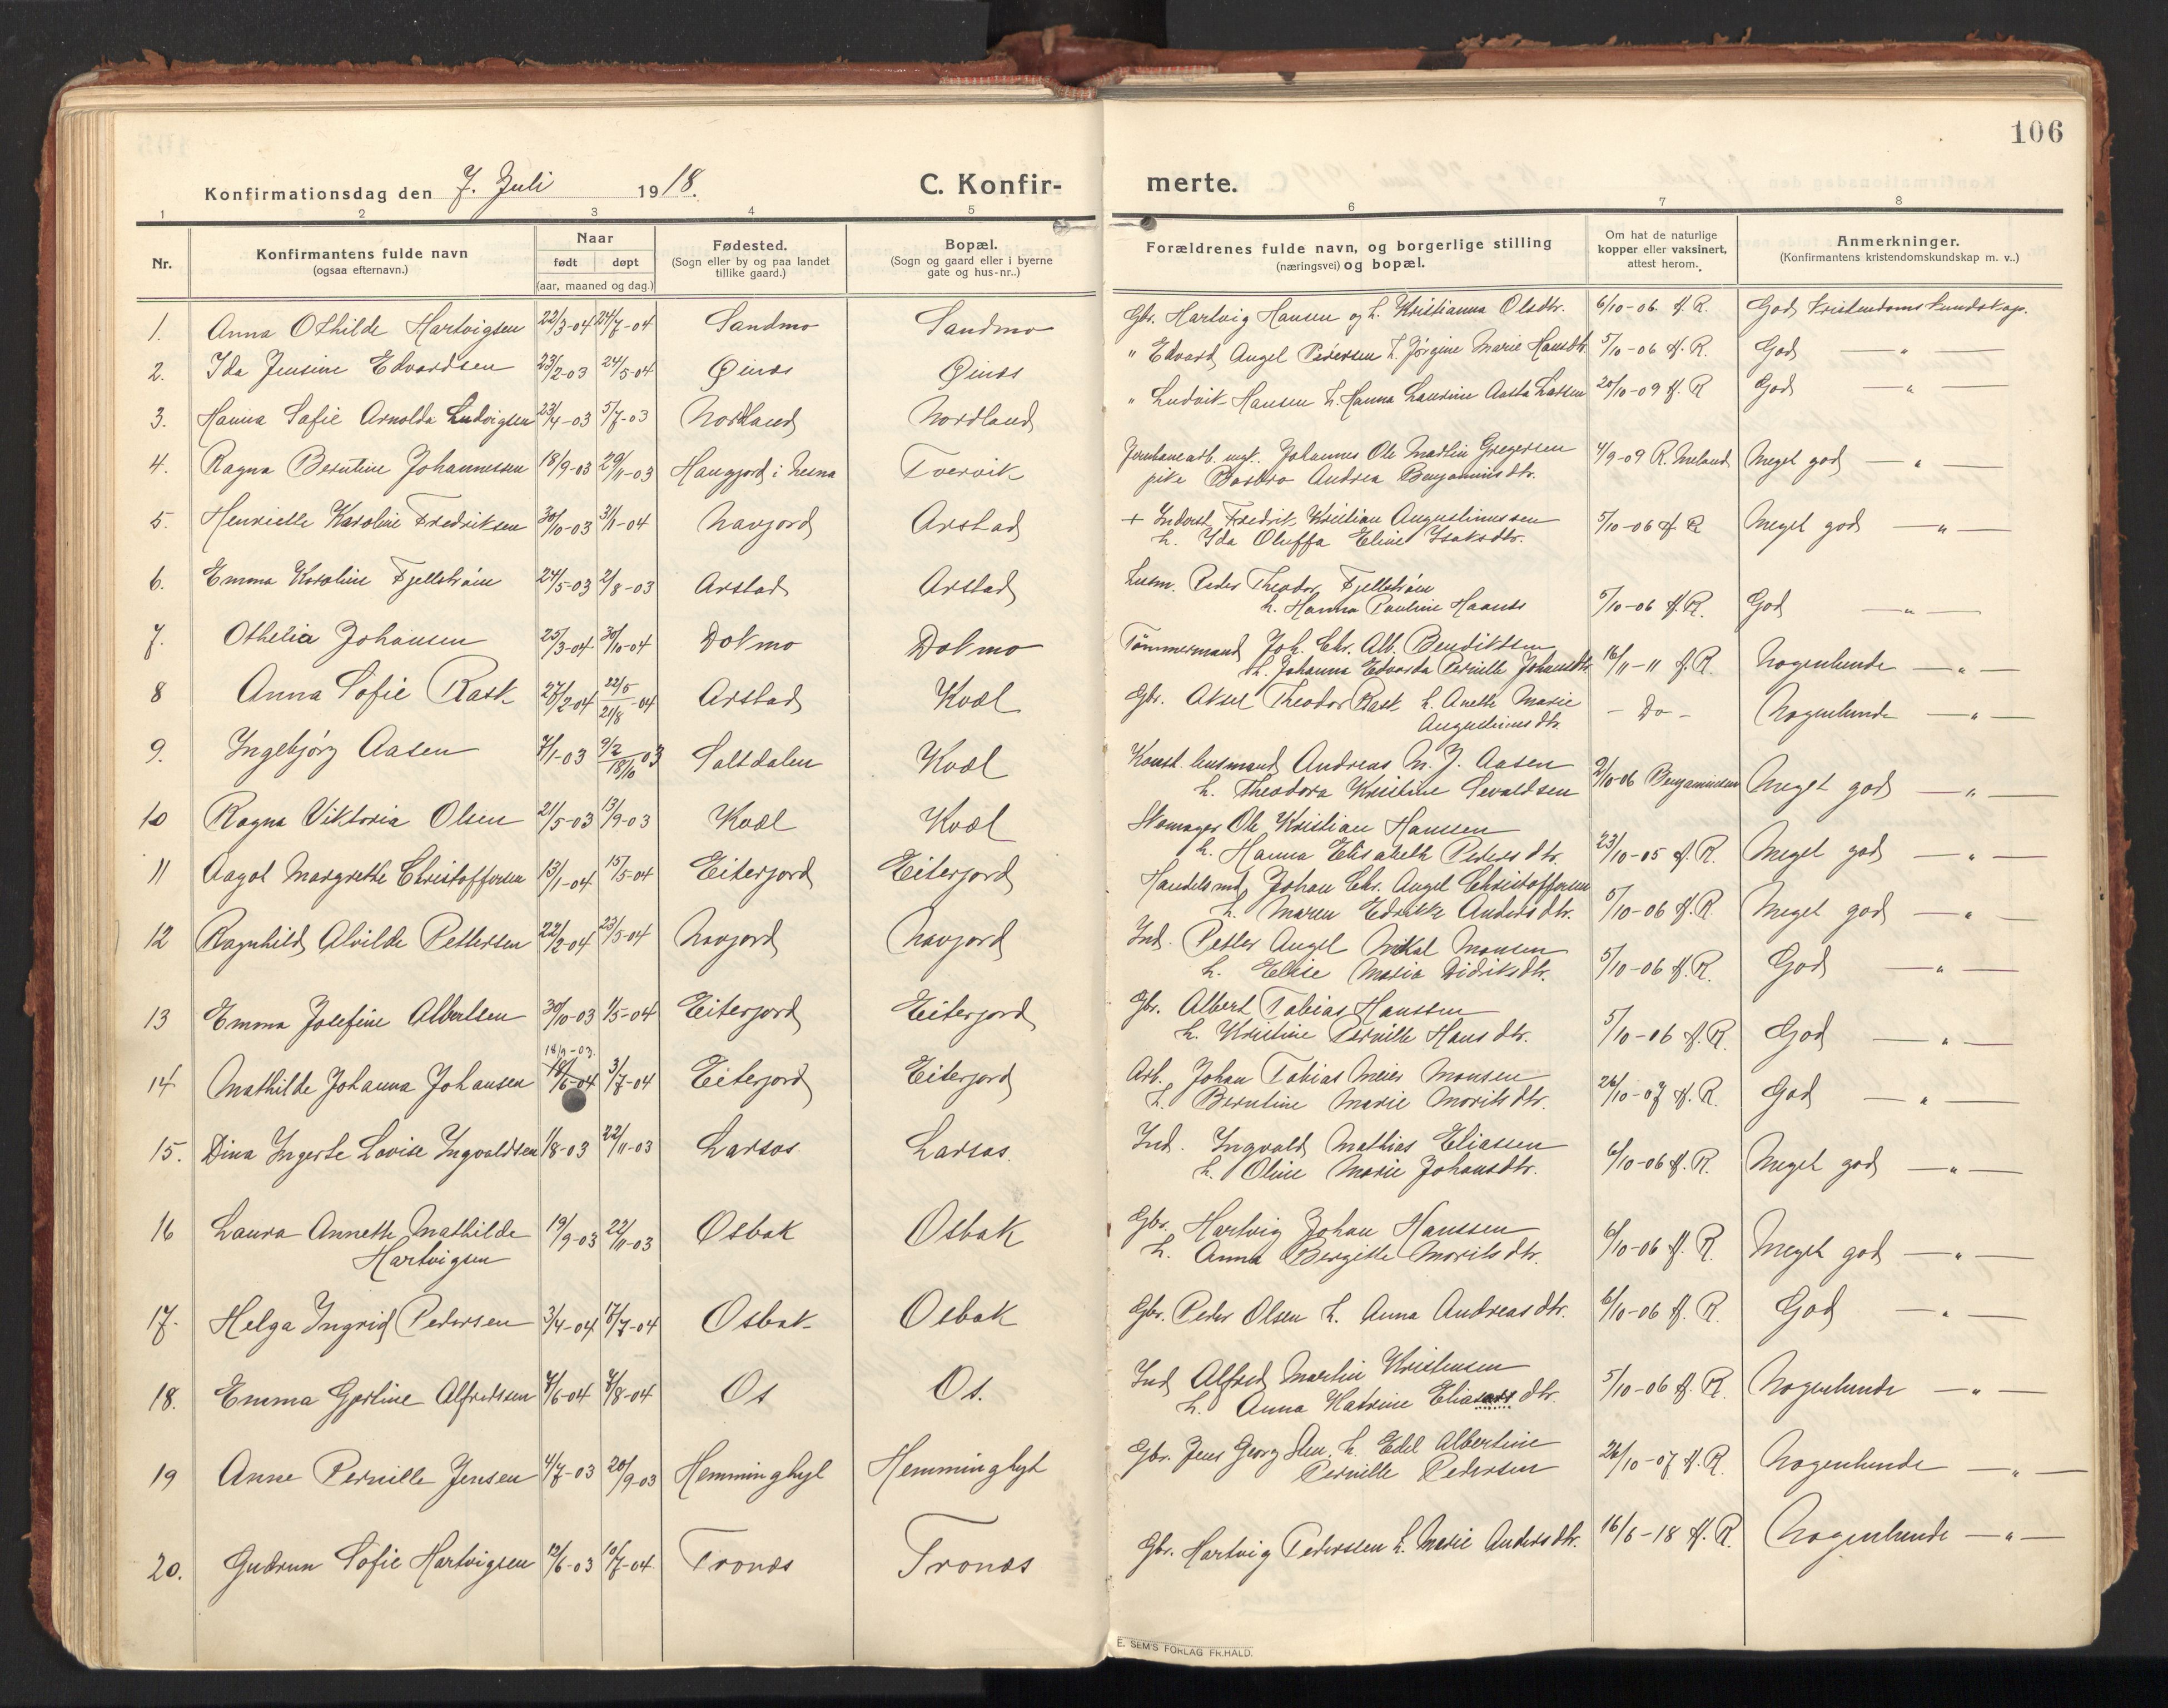 106
Konfirmationsdag den 7. Juli 1918. C. Konfir- merte.
1 2 3 4 5 6 7 8
Nr. Konfirmantens fulde navn (ogsaa efternavn.) Naar født døpt (aar, maaned og dag.) Fødested. (Sogn eller by og paa landet tillike gaard.) Bopæl. (Sogn og gaard eller i byerne gate og hus-nr..) Forældrenes fulde navn, og borgerlige stilling (næringsvei) og bopæl. Om hat de naturlige kopper eller vaksinert, attest herom. Anmerkninger. (Konfirmantens kristendomskundskap m. v..)
1. Anna Othilde Hartvigsen 22/3-04 24/7-04 Sandmo Sandmo Gbr. Hartvig Hansen og h. Kristianna Olsdtr. 6/10-06 A. R. God kristendoms kundskap.
2. Ida Jensine Edvardsen 23/2-03 24/5-04 Øinæs Øinæs " Edvard Angel Pedersen h. Jørgine Marie Hansdtr. 5/10-06 A. R. God — " —
3. Hanna Sofie Arnolda Ludvigsen 23/4-03 5/7-03 Nordland Nordland " Ludvik Hansen h. Hanna Laurine Aasta Larsen 20/10-09 A. R God — " —
4. Ragna Berntine Johannessen 18/9-03 29/11-03 Haugjord i Nesna Tvervik Jernbanearb. ugt. Johannes Ole Martin Gregersen
pike Barbro Andrea Benjaminsdtr. 4/9-09 R. Meland Meget god — " —
5. Henriette Karoline Fredriksen 30/10-03 3/1-04 Navjord Arstad + Inderst Fredrik Kristian Augustinussen
h. Ida Oluffa Eline Isaksdtr. 5/10-06 A. R Meget god — " —
6. Emma Karoline Fjellstrøm 24/5-03 2/8-03 Arstad Arstad Husm. Peder Theodor Fjellstrøm
h. Hanna Pauline Haanes 5/10-06 A. R. God — " —
7. Othelia Johansen 25/3-04 30/10-04 Dolmo Dolmo Tømmermand Joh. Chr. Alb. Bendiktsen
h. Johanna Edvarda Pernille Johansdtr. 16/11-11 A. R. Nogenlunde — " —
8 Anna Sofie Rask 27/2-04 22/5 21/8-04 Arstad Kvæl Gbr. Aksel Theodor Rask h. Anette Marie
Augustinusdtr. — Do — Nogenlunde — " —
9. Ingebjørg Aasen 7/1-03 9/2 18/10 03 Saltdalen Kvæl Konst. husmand Andreas M. J. Aasen
h. Theodora Kristine Sevaldsen 2/10-06 Benjaminsen Meget god — " —
10 Ragna Viktoria Olsen 21/5-03 13/9-03 Kvæl Kvæl Skomager Ole Kristian Hanssen
h. Hanna Elisabeth Pedersdtr. 23/10-05 A. R. Meget god — " —
11 Aagot Margrethe Christoffersen 13/1-04 15/5-04 Eiterjord Eiterjord Handelsmd. Johan Chr. Angel Christoffersen
h. Maren Edrikke Andersdtr. 5/10-06 A. R. Meget god — " —
12 Ragnhild Alvilde Pettersen 22/2-04 23/5-04 Navjord Navjord Ind. Petter Angel Mikal Monsen
h. Elise Maria Didriksdtr. 5/10-06 A. R. God — " —
13 Emma Josefine Albertsen 30/10-03 1/5-04 Eiterjord Eiterjord Gbr. Albert Tobias Hanssen
h. Kristine Pernille Hansdtr. 5/10-06 A. R. God — " —
14 Mathilde Johanna Johansen 18/9-03. 18/6-04 3/7-04 Eiterjord Eiterjord Arb. Johan Tobias Meier Monsen
h. Berntine Marie Moritsdtr. 26/10-07 A. R. God — " —
15. Dina Ingerte Lovise Ingvaldsen 1/8-03 22/11-03 Larsos. Larsos. Ind. Ingvald Mathias Eliassen
h. Oline Marie Johansdtr. 6/10-06 A. R. Meget god — " —
16 Laura Annette Mathilde
Hartvigsen 19/9-03 22/11-03 Osbak Osbak Gbr. Hartvig Johan Hanssen
h. Anna Bergitte Moritsdtr. 6/10-06 A. R. Meget god — " —
17. Helga Ingrid Pedersen 3/4-04 17/7-04 Osbak Osbak Gbr. Peder Olsen h. Anna Andreasdtr. 6/10-06 A. R. God — " —
18. Emma Gjertine Alfredssen 7/6-04 7/8-04 Os Os. Ind Alfred Martin Kristensen
h. Anna Katrine Eliasdtr. 5/10-06 A. R. Nogenlunde — " —
19 Anne Pernille Jensen 4/7-03 20/9-03 Hemminghyt Hemminghyt Gbr. Jens Georg h. Edel Albertine
Pernille Pedersen 26/10-07 A. R. Nogenlunde — " —
20. Gudrun Sofie Hartvigsen 12/6-03 10/7-04 Tronæs Tronæs Gbr. Hartvig Pederssen h. Marie Andersdtr. 16/6-18 A. R. Nogenlunde — " —
E. SEM'S FORLAG FR.HALD.